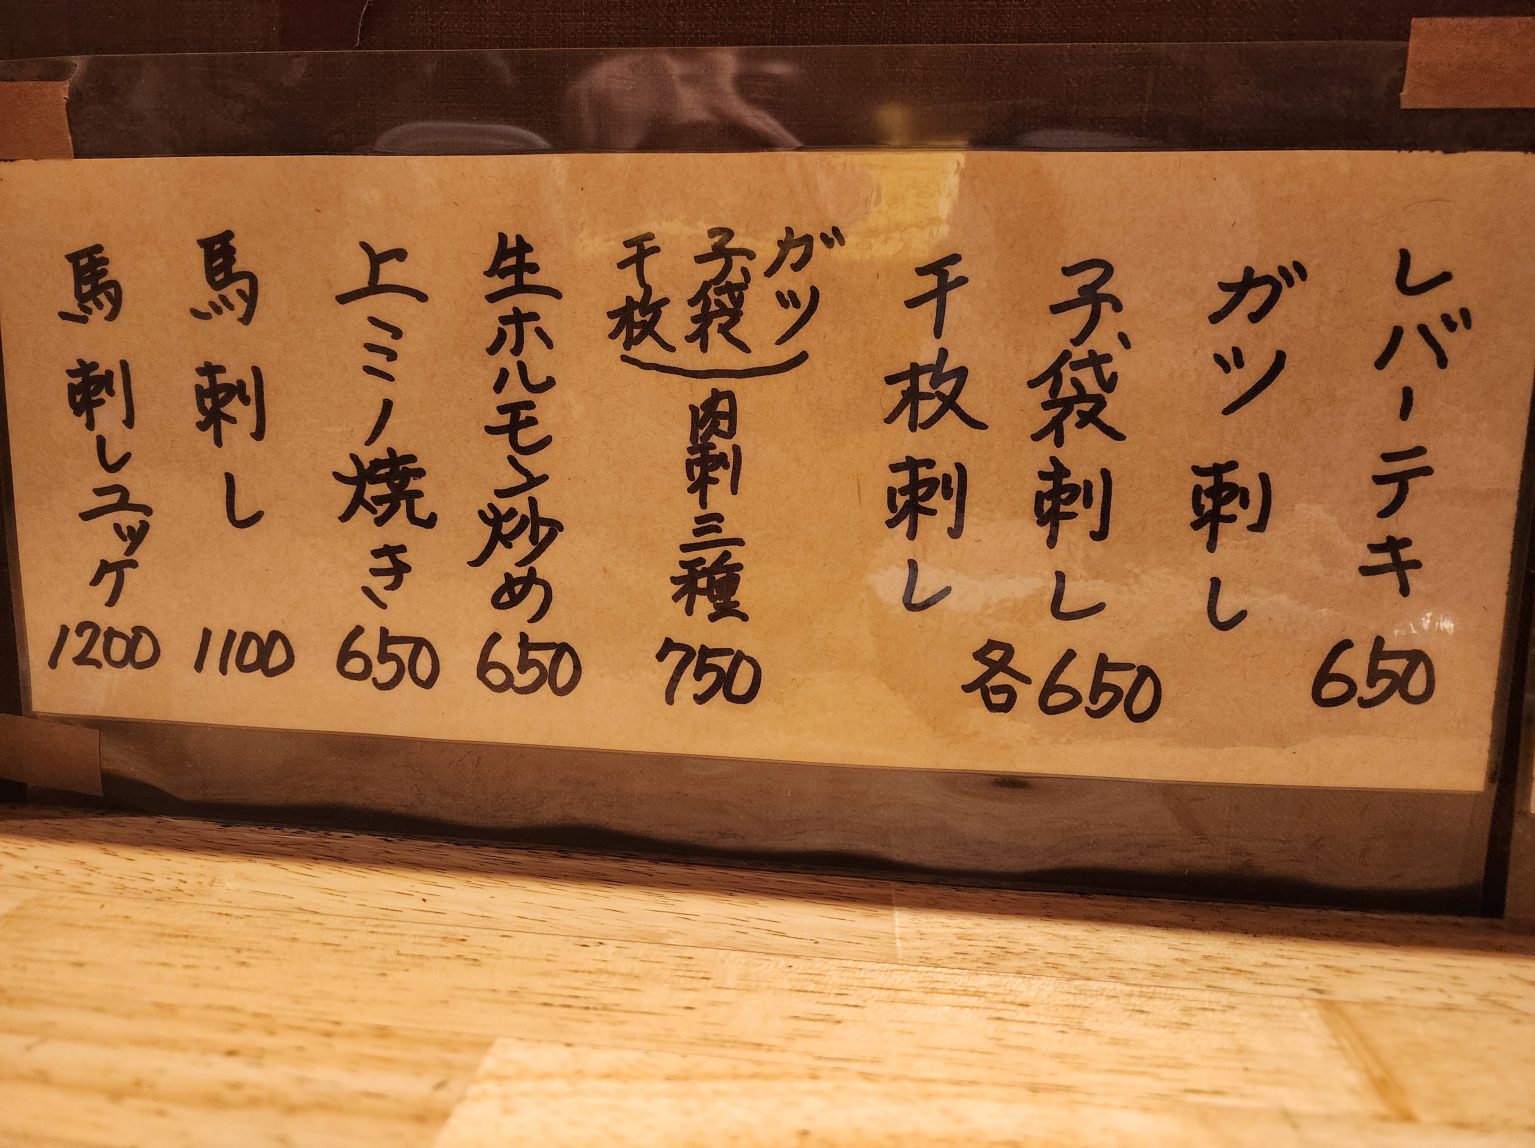 レバーテキ
650
ガツ刺し
子袋刺し
千枚刺し
各650
ガツ
子袋
千枚
肉刺三種
750
生ホルモン炒め
650
上ミノ焼き
650
馬刺し
1100
馬刺しユッケ
1200